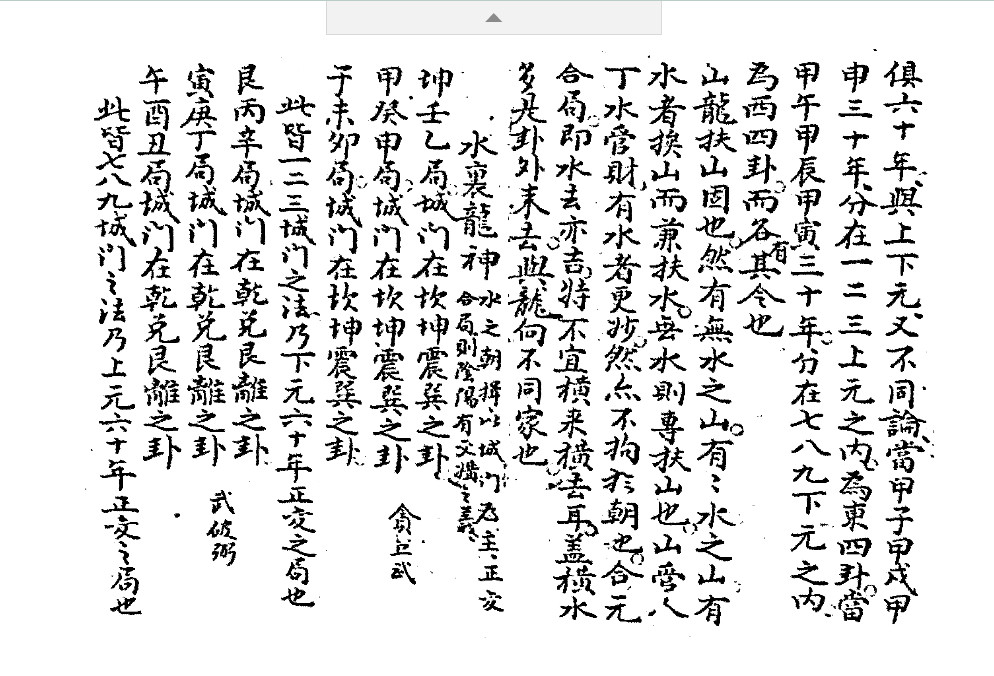 俱六十年與上下元又不同論當甲子甲戌甲
申三十年分在一二三上元之內為東四卦當
甲午甲辰甲寅三十年分在七八九下元之內
為西四卦而各有其令也
山龍扶山固也然有無水之山有〻水之山有
水者換山而兼扶水無水則專扶山也山管人
丁水管財有水者更妙然点不拘扵朝也合元
合局即水去亦吉特不宜橫来橫去耳盖橫水
多是卦外来去與龍向不同家也
水裏龍神 水之朝揖以城门為主〻正交
合局則陰陽有交媾之義
坤壬乙局城门在坎坤震巽之卦
甲癸申局城门在坎坤震巽之卦 貪巨武
子未卯局城门在坎坤震巽之卦
此皆一二三城门之法乃下元六十年正交之局也
艮丙辛局城门在乾兌艮離之卦
寅庚丁局城门在乾兌艮離之卦 武破弼
午酉丑局城门在乾兌艮離之卦
此皆七八九城门之法乃上元六十年正交之局也